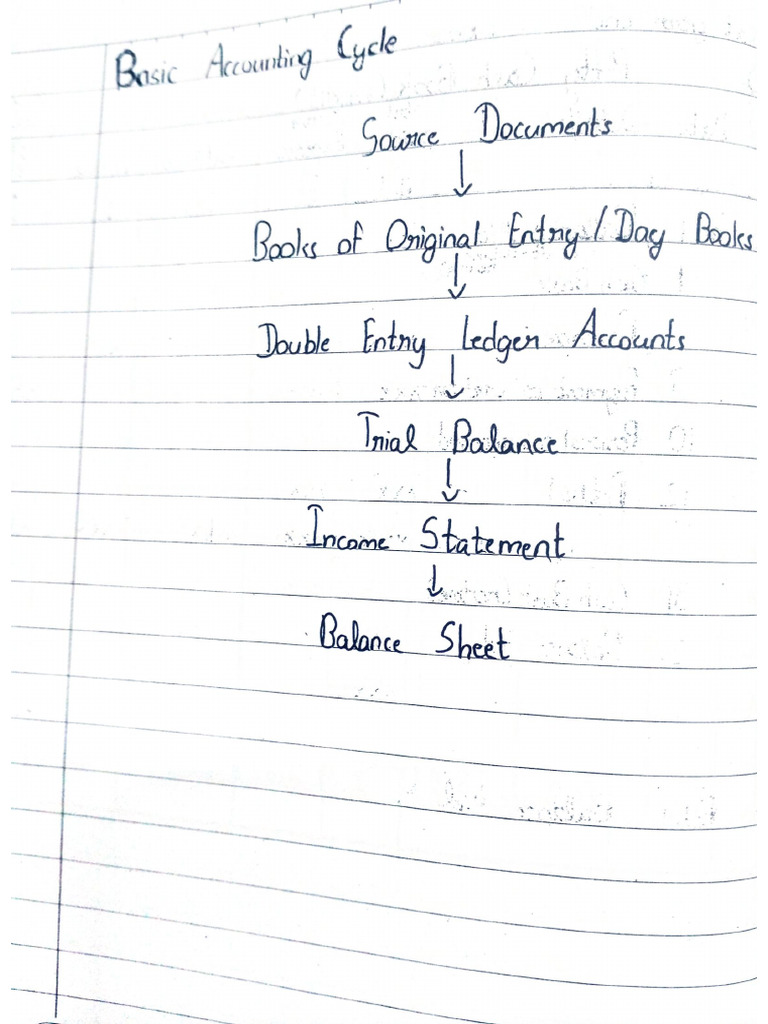 Basic Accounting Cycle
Source Documents
↓
Books of Original Entry / Day Books
↓
Double Entry Ledger Accounts
↓
Trial Balance
↓
Income Statement
↓
Balance Sheet